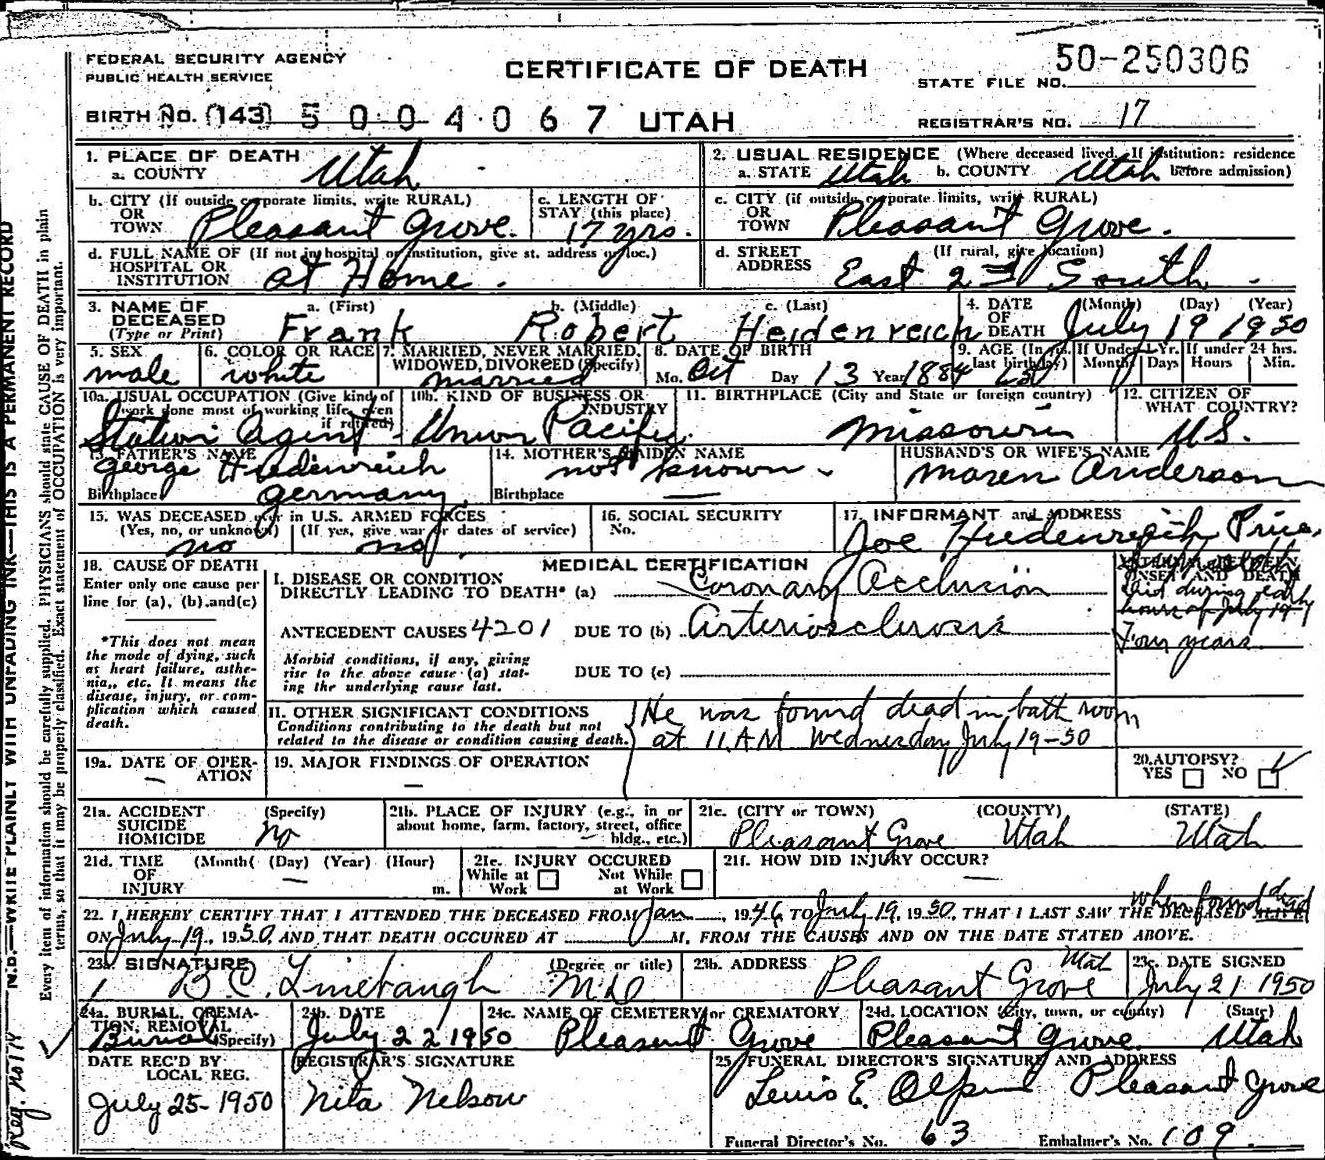 FEDERAL SECURITY AGENCY
PUBLIC HEALTH SERVICE
CERTIFICATE OF DEATH
STATE FILE NO. 50-250306
BIRTH NO. (143) 5 0 0 4 0 6 7 UTAH
REGISTRAR'S NO. 17
1. PLACE OF DEATH
a. COUNTY Utah
2. USUAL RESIDENCE (Where deceased lived. If institution: residence before admission)
a. STATE Utah b. COUNTY Utah
b. CITY (If outside corporate limits, write RURAL) OR TOWN Pleasant Grove.
c. LENGTH OF STAY (this place) 17 yrs.
c. CITY (if outside corporate limits, write RURAL) OR TOWN Pleasant Grove.
d. FULL NAME OF (If not in hospital or institution, give st. address or loc.) HOSPITAL OR INSTITUTION at Home.
d. STREET ADDRESS (If rural, give location) East 2nd South
3. NAME OF DECEASED (Type or Print)
a. (First) Frank b. (Middle) Robert c. (Last) Heidenreich
4. DATE OF DEATH (Month) (Day) (Year) July 19 1950
5. SEX male
6. COLOR OR RACE white
7. MARRIED, NEVER MARRIED, WIDOWED, DIVORCED (Specify) married
8. DATE OF BIRTH Mo. Oct Day 13 Year 1884
9. AGE (In yrs. last birthday) If Under 1 Yr. Months Days If under 24 hrs. Hours Min.
10a. USUAL OCCUPATION (Give kind of work done most of working life, even if retired) Station Agent
10b. KIND OF BUSINESS OR INDUSTRY Union Pacific.
11. BIRTHPLACE (City and State or foreign country) Missouri
12. CITIZEN OF WHAT COUNTRY? U.S.
13. FATHER'S NAME George Heidenreich
Birthplace Germany
14. MOTHER'S MAIDEN NAME not known
Birthplace —
HUSBAND'S OR WIFE'S NAME Maren Anderson
15. WAS DECEASED ever in U.S. ARMED FORCES
(Yes, no, or unknown) no (If yes, give war or dates of service) no
16. SOCIAL SECURITY No.
17. INFORMANT and ADDRESS
Joe Heidenreich, Price,
18. CAUSE OF DEATH
Enter only one cause per line for (a), (b), and (c)
*This does not mean the mode of dying, such as heart failure, asthenia, etc. It means the disease, injury, or complication which caused death.
MEDICAL CERTIFICATION
I. DISEASE OR CONDITION DIRECTLY LEADING TO DEATH* (a) Coronary Occlusion
ANTECEDENT CAUSES 4201 DUE TO (b) Arteriosclerosis
Morbid conditions, if any, giving rise to the above cause (a) stating the underlying cause last.
DUE TO (c)
ONSET AND DEATH
died during early
hours of July 19
Four years
II. OTHER SIGNIFICANT CONDITIONS
Conditions contributing to the death but not related to the disease or condition causing death.
He was found dead in bath room
at 11 AM Wednesday July 19-50
19a. DATE OF OPERATION —
19. MAJOR FINDINGS OF OPERATION —
20. AUTOPSY? YES NO ✓
21a. ACCIDENT SUICIDE HOMICIDE (Specify) No
21b. PLACE OF INJURY (e.g., in or about home, farm, factory, street, office bldg., etc.) —
21c. (CITY or TOWN) (COUNTY) (STATE)
Pleasant Grove Utah Utah
21d. TIME OF INJURY (Month) (Day) (Year) (Hour) m. —
21e. INJURY OCCURED While at Work Not While at Work
21f. HOW DID INJURY OCCUR?
when found dead
22. I HEREBY CERTIFY THAT I ATTENDED THE DECEASED FROM Jan, 1946, TO July 19, 1950, THAT I LAST SAW THE DECEASED ALIVE
ON July 19, 1950, AND THAT DEATH OCCURED AT M. FROM THE CAUSES AND ON THE DATE STATED ABOVE.
23a. SIGNATURE (Degree or title) B C. Linebaugh MD
23b. ADDRESS Pleasant Grove Utah
23c. DATE SIGNED July 21 1950
24a. BURIAL, CREMATION, REMOVAL (Specify) Burial
24b. DATE July 22 1950
24c. NAME OF CEMETERY or CREMATORY Pleasant Grove
24d. LOCATION (City, town, or county) (State) Pleasant Grove Utah
DATE REC'D BY LOCAL REG. July 25-1950
REGISTRAR'S SIGNATURE Nita Nelson
25. FUNERAL DIRECTOR'S SIGNATURE AND ADDRESS
Lewis E. Olpin Pleasant Grove
Funeral Director's No. 63 Embalmer's No. 109.
N.B.—WRITE PLAINLY WITH UNFADING INK—THIS IS A PERMANENT RECORD
Every item of information should be carefully supplied. PHYSICIANS should state CAUSE OF DEATH in plain
terms, so that it may be properly classified. Exact statement of OCCUPATION is very important.